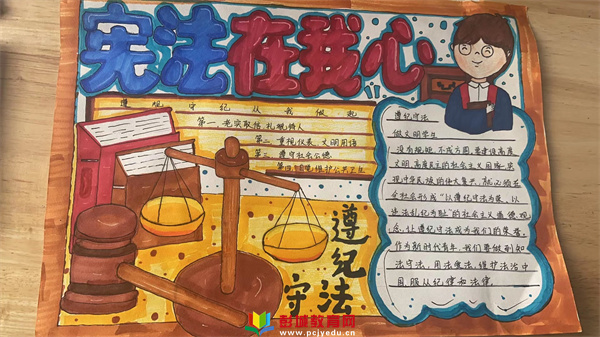 宪法在我心
遵规守纪从我做起
第一 老实取信 礼貌待人
第二 重视仪表 文明用语
第三 遵守社会公德
第四 维护公共卫生
遵纪守法
做文明学生
没有规矩,不成方圆,要建设高度
文明、高度民主的社会主义国家,实
现中华民族的伟大复兴,就必须在
全社会形成“以遵纪守法为荣、以
违法乱纪为耻”的社会主义道德观
念,让遵纪守法成为我们的
作为新时代青年,我们要做到知
法守法、用法
服从纪律和法律。
遵纪
守法
彭城教育网
www.pcjyedu.cn